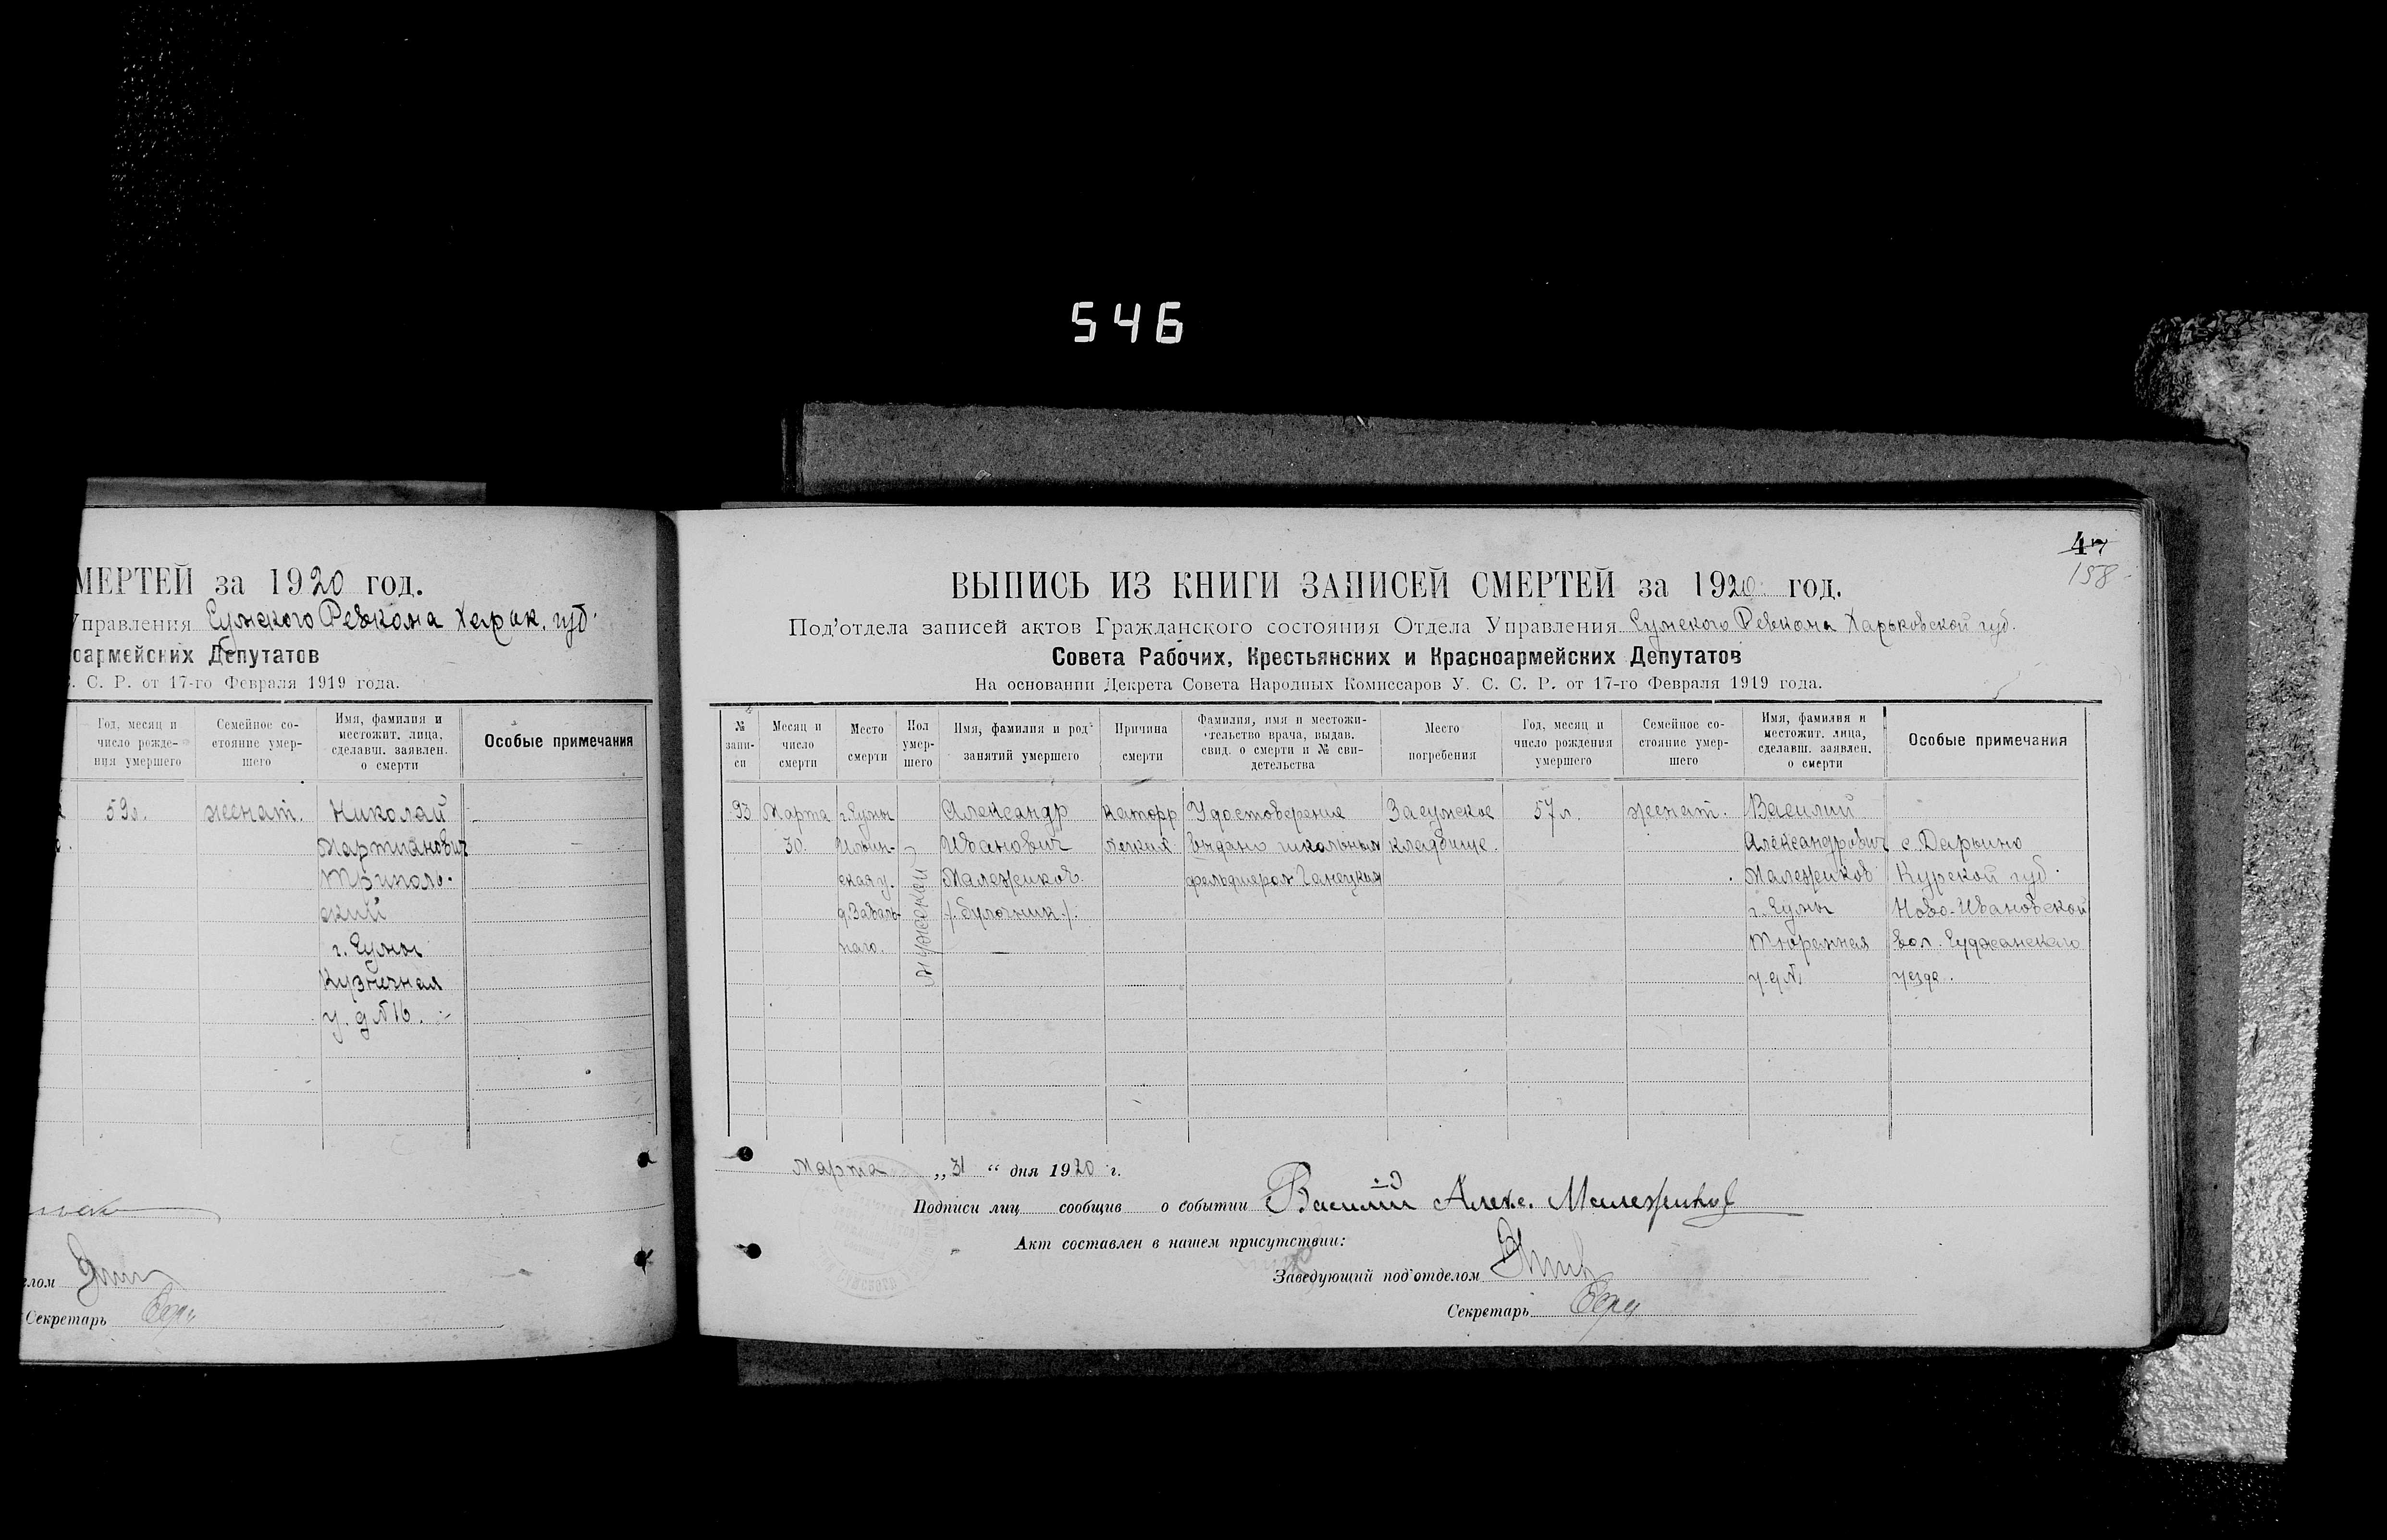 546
МЕРТЕЙ за 1920 год.
Управления Сумского Ревкома Харьк. губ.
оармейских Депутатов
С. С. Р. от 17-го Февраля 1919 года.
Год, месяц и число рожде-ния умершего
Семейное со-стояние умер-шего
Имя, фамилия и местожит. лица, сделавш. заявлен. о смерти
Особые примечания
59 л. женат. Николай
Мартианович
Триполь-
ский
г. Сумы
Кузнечная
у. д № 16.
елом
Секретарь
47
158
ВЫПИСЬ ИЗ КНИГИ ЗАПИСЕЙ СМЕРТЕЙ за 1920 год.
Под'отдела записей актов Гражданского состояния Отдела Управления Сумского Ревкома Харьковской губ.
Совета Рабочих, Крестьянских и Красноармейских Депутатов
На основании Декрета Совета Народных Комиссаров У. С. С. Р. от 17-го Февраля 1919 года.
№ запи-си
Месяц и число смерти
Место смерти
Пол умер-шего
Имя, фамилия и род занятий умершего
Причина смерти
Фамилия, имя и местожи-тельство врача, выдав. свид. о смерти и № сви-детельства
Место погребения
Год, месяц и число рождения умершего
Семейное со-стояние умер-шего
Имя, фамилия и местожит. лица, сделавш. заявлен. о смерти
Особые примечания
93 Марта г. Сумы Александр Каторр Удостоверение Засумское 57 л. женат. Василий
30. Ильин- Иванович легких выдано школьным кладбище. Александрович с. Дарьино
ская у. Малежиков фельдшером Малежиков Курской губ.
д. Заваль- /.булочник./. г. Сумы Ново-Ивановской
наго. Тюремная вол. Суджанскаго
у. д № уезда.
мужеской
Марта „31 “ дня 1920 г.
Подписи лиц сообщив о событии Василий Алекс. Малежиков
Акт составлен в нашем присутствии:
Заведующий под'отделом
Секретарь